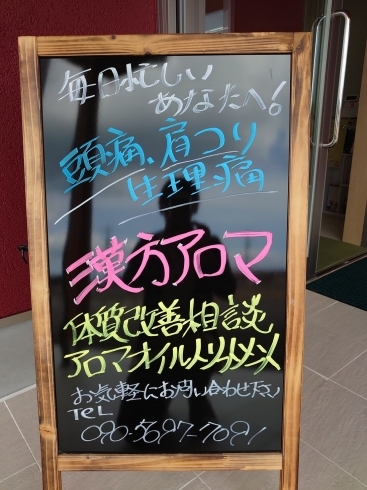 毎日忙しい
あなたへ!
頭痛、肩つり
生理痛
漢方アロマ
体質改善相談
アロマオイルトリートメント
お気軽にお問い合わせ下さい
TEL
090-5697-7091